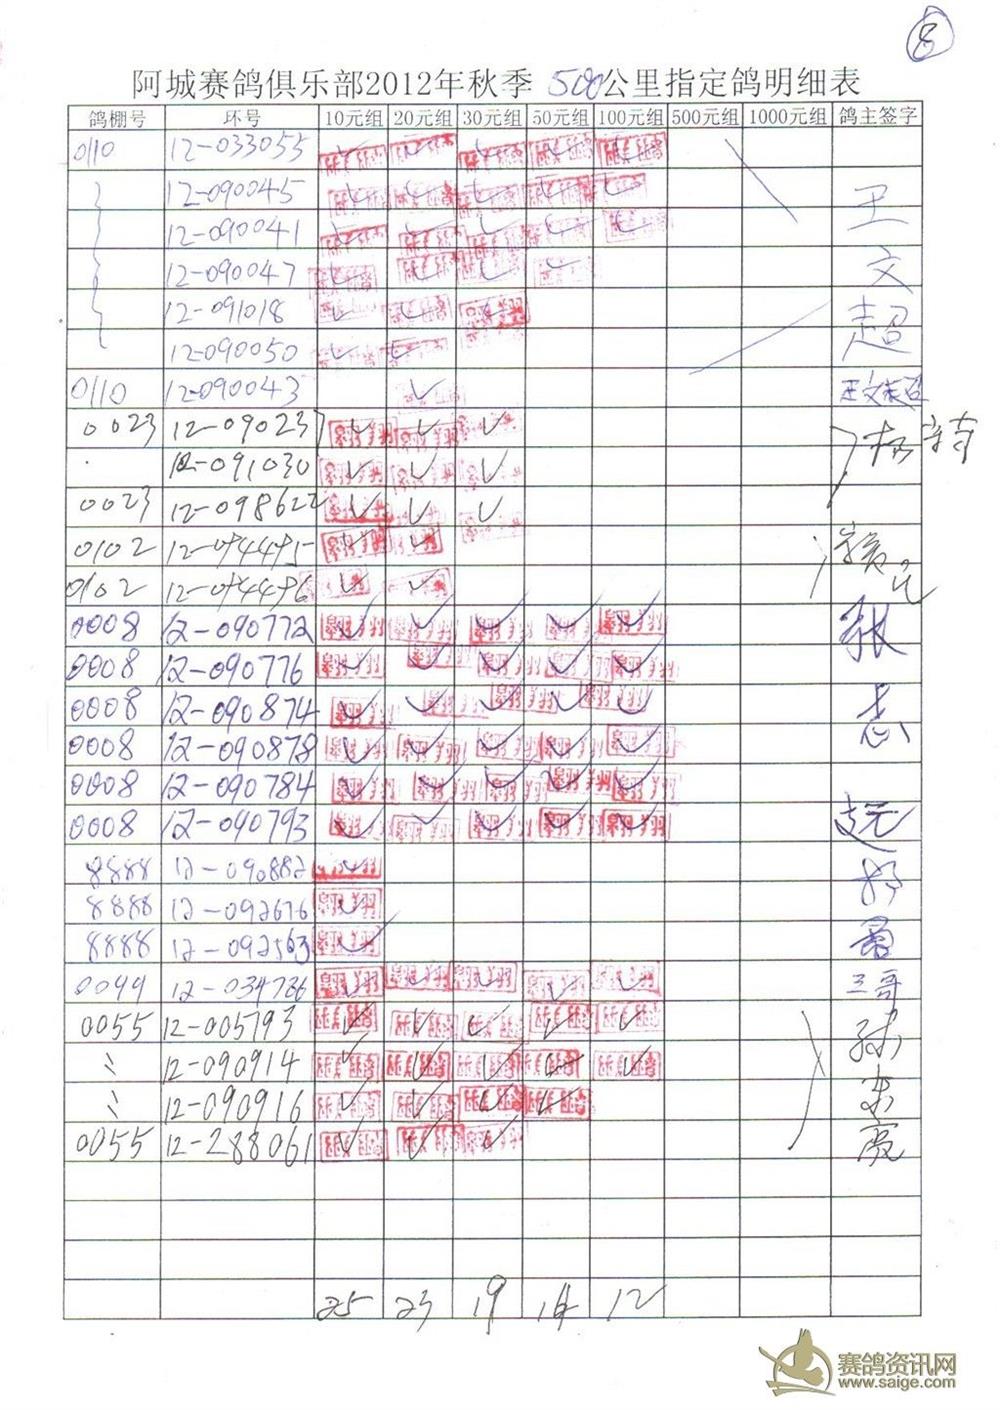 8
阿城赛鸽俱乐部2012年秋季 500公里指定鸽明细表
鸽棚号 环号 10元组 20元组 30元组 50元组 100元组 500元组 1000元组 鸽主签字
0110 12-033055
12-090045 王
12-090041
12-090047 文
12-091018 超
12-090050
0110 12-090043 王文超
0023 12-09023 杨
12-091030
0023 12-098622
0102
0102
0008 12-090772 张
0008 12-090776
0008 12-090874 志
0008 12-090878
0008 12-090784
0008 12-090793 远
8888 12-090882
8888 12-092676
8888 12-092563
0099 12-034736 三哥
0055 12-005793 孙
〃 12-090914
〃 12-090916
0055 12-288061
25 23 19 16 12
赛鸽资讯网
www.saige.com